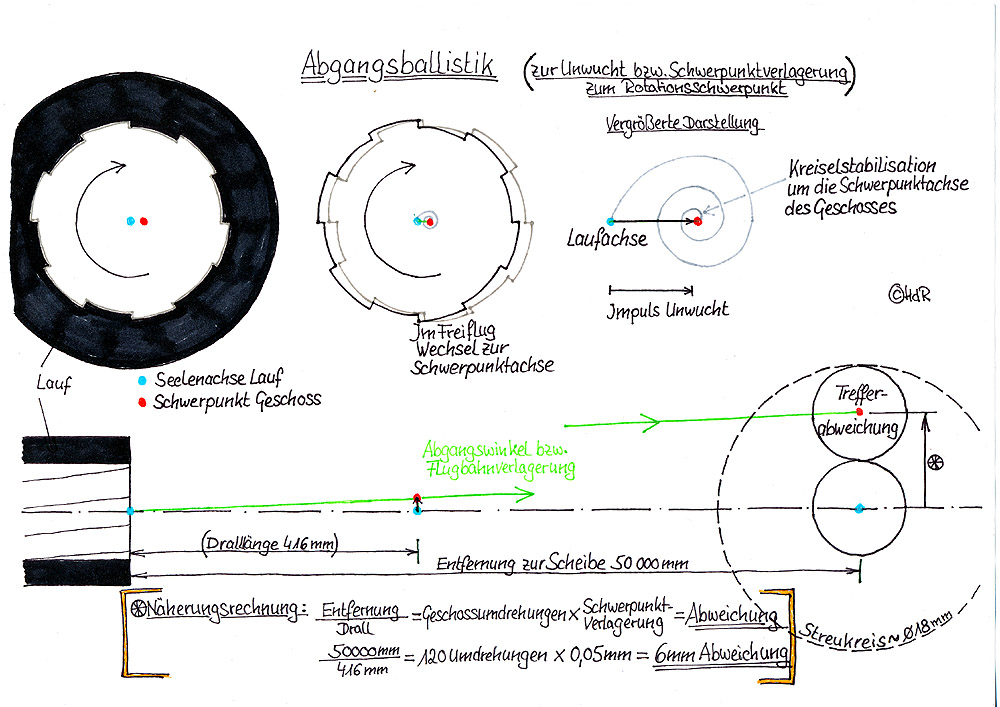 Abgangsballistik
(zur Unwucht bzw. Schwerpunktverlagerung
zum Rotationsschwerpunkt)
Vergrößerte Darstellung
Kreiselstabilisation
um die Schwerpunktachse
des Geschosses
Laufachse
Impuls Unwucht
©HdR
Im Freiflug
Wechsel zur
Schwerpunktachse
Lauf
Seelenachse Lauf
Schwerpunkt Geschoss
Treffer-
abweichung
Abgangswinkel bzw.
Flugbahnverlagerung
(Dralllänge 416mm)
Entfernung zur Scheibe 50 000mm
Streukreis ~ Ø18mm
Näherungsrechnung: Entfernung/Drall = Geschossumdrehungen × Schwerpunkt-Verlagerung = Abweichung
50000mm/416mm = 120 Umdrehungen × 0,05mm = 6mm Abweichung